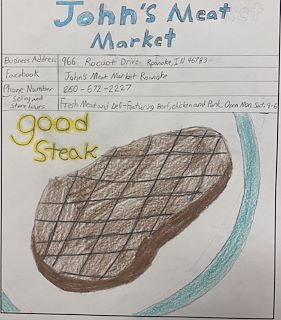 John's Meat
Market
Business Address 966 Rocwot Drive Roanoke, IN 46783
Facebook John's Meat Market Roanoke
Phone Number 260-672-2227
Selling and store hours Fresh Meat and Deli-Featuring Beef, chicken and Pork. Open Mon. Sat. 9-6
good
Steak